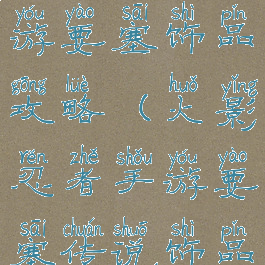 yóu yào sāi shì pǐn
游要塞饰品
gōng lüè huǒ yǐng
攻略（火影
rěn zhě shǒu yóu yào
忍者手游要
sāi chuán shuō shì pǐn
塞传说饰品